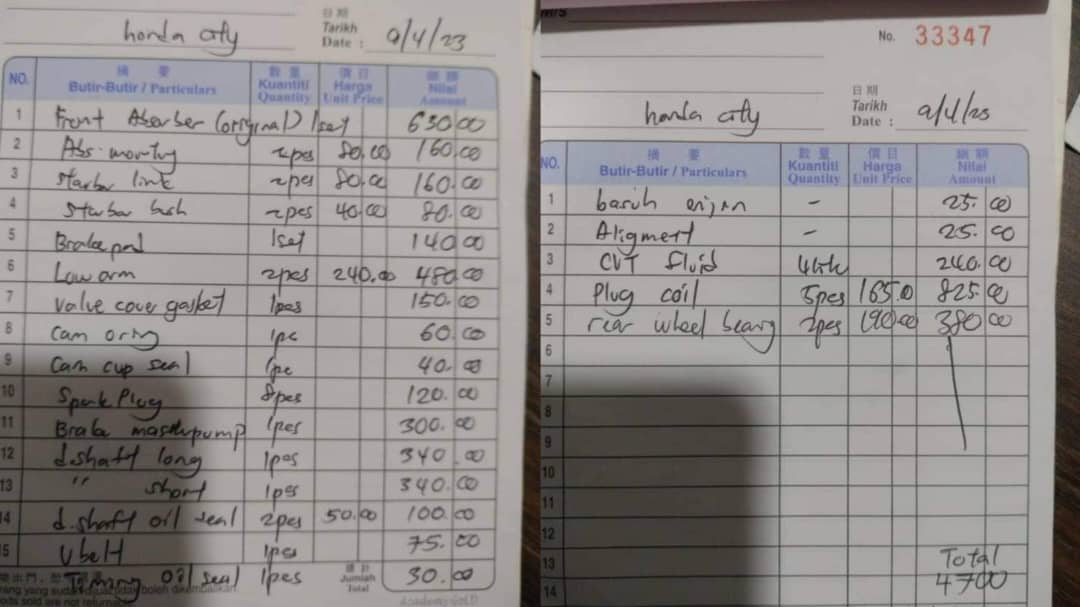 日期
Tarikh
Date : 9/4/23
honda city
NO. 摘要 Butir-Butir / Particulars 數量 Kuantiti Quantity 價目 Harga Unit Price 總額 Nilai Amount
1 Front Absorber (original) 1set 630.00
2 Abs. mounting 2pcs 80.00 160.00
3 Starbar link 2pcs 80.00 160.00
4 Starbar bush 2pcs 40.00 80.00
5 Brake pad 1set 140.00
6 Low arm 2pcs 240.00 480.00
7 Valve cover gasket 1pcs 150.00
8 Cam oring 1pc 60.00
9 Cam cup seal 1pc 40.00
10 Spark Plug 8pcs 120.00
11 Brake masterpump 1pcs 300.00
12 d.shaft long 1pcs 340.00
13 " short 1pcs 340.00
14 d.shaft oil seal 2pcs 50.00 100.00
15 V belt 1pcs 75.00
Timing oil seal 1pcs 30.00
總計
Jumlah
Total
M/S
No. 33347
日期
Tarikh
Date : 9/4/23
honda city
NO. 摘要 Butir-Butir / Particulars 數量 Kuantiti Quantity 價目 Harga Unit Price 總額 Nilai Amount
1 basuh enjin - 25.00
2 Aligment - 25.00
3 CVT fluid 240.00
4 Plug coil 5pcs 165.0 825.00
5 rear wheel bearing 2pcs 190.00 380.00
6
7
8
9
10
11
12
13 Total
14 4700